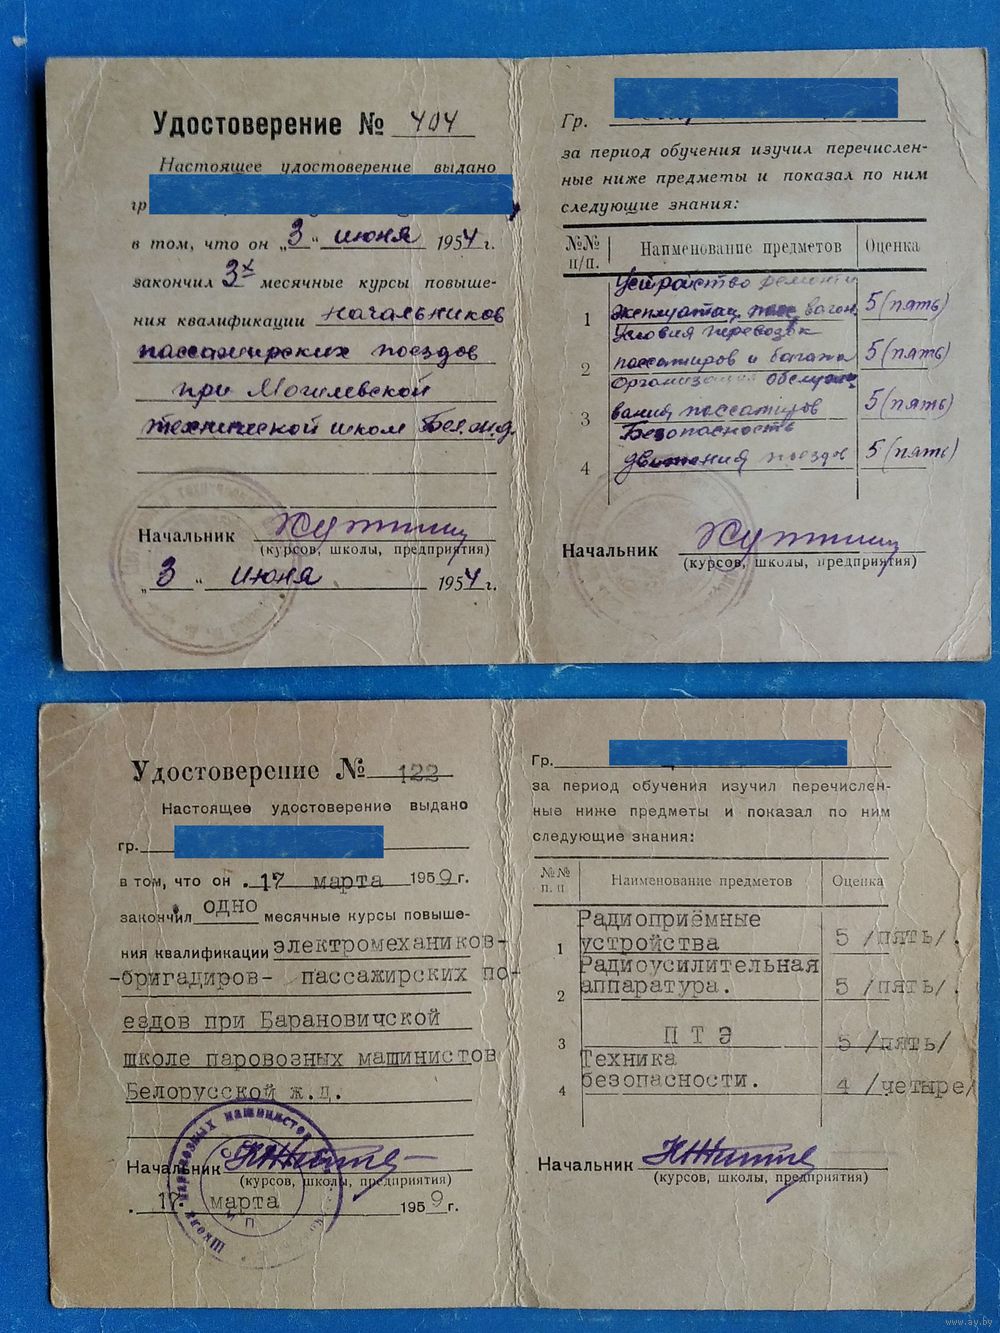 Удостоверение № 404
Настоящее удостоверение выдано
гр
в том, что он „3“ июня 1954 г.
закончил 3х месячные курсы повыше-
ния квалификации начальников
пассажирских поездов
при Могилевской
технической школ Бел.ж.д.
Начальник
(курсов, школы, предприятия)
„3“ июня 1954 г.
Гр.
за период обучения изучил перечислен-
ные ниже предметы и показал по ним
следующие знания:
№№ п/п. Наименование предметов Оценка
Устройство ремонт и
1 эксплуатац пасс вагон 5 (пять)
Условия перевозок
2 пассажиров и багажа 5 (пять)
Организация обслужи
3 вания пассажиров 5 (пять)
Безопасность
4 движения поездов 5 (пять)
Начальник
(курсов, школы, предприятия)
Удостоверение № 122
Настоящее удостоверение выдано
гр.
в том, что он „17 марта 1959 г.
закончил одно месячные курсы повыше-
ния квалификации электромехаников-
-бригадиров- пассажирских по-
ездов при Барановичской
школе паровозных машинистов
Белорусской ж.д.
Начальник
(курсов, школы, предприятия)
17 марта 1959 г.
Школа паровозных машинистов
Гр.
за период обучения изучил перечислен-
ные ниже предметы и показал по ним
следующие знания:
№№ п. п Наименование предметов Оценка
Радиоприёмные
1 устройства 5 /пять/.
Радиоусилительная
2 аппаратура. 5 /пять/.
3 П Т Э 5 /пять/
Техника
4 безопасности. 4 /четыре/
Начальник
(курсов, школы, предприятия)
www.ay.by